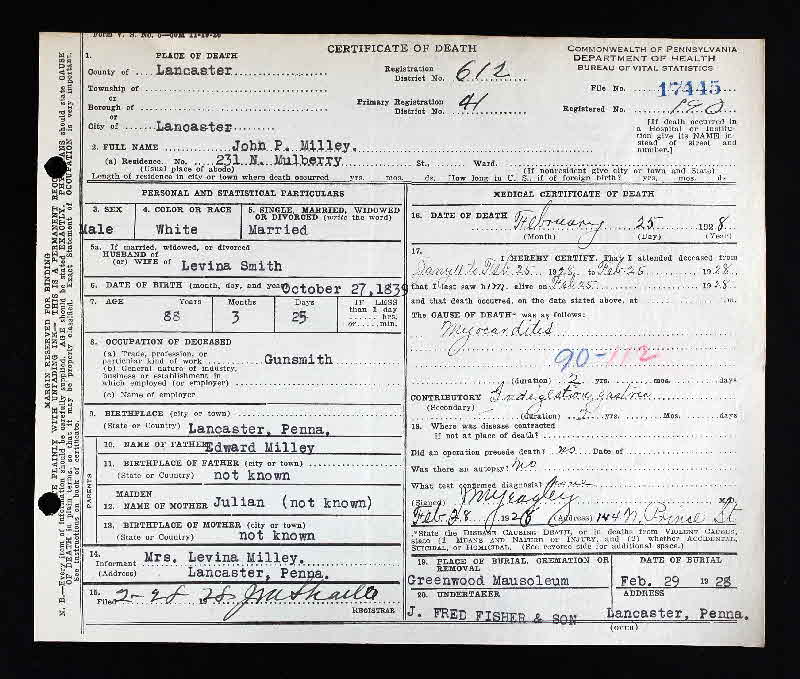 Form V. S. No. 5—60M 11-19-26
CERTIFICATE OF DEATH
COMMONWEALTH OF PENNSYLVANIA
DEPARTMENT OF HEALTH
BUREAU OF VITAL STATISTICS
1. PLACE OF DEATH
County of Lancaster
Township of
or
Borough of
or
City of Lancaster
Registration District No. 612
Primary Registration District No. 41
File No. 17445
Registered No. 190
[If death occurred in a Hospital or Institution give its NAME instead of street and number.]
2. FULL NAME John P. Milley.
(a) Residence. No. 231 N. Mulberry St., Ward.
(Usual place of abode) (If nonresident give city or town and State)
Length of residence in city or town where death occurred yrs. mos. ds. How long in U. S., if of foreign birth? yrs. mos. d.
MARGIN RESERVED FOR BINDING
PERSONAL AND STATISTICAL PARTICULARS
3. SEX Male
4. COLOR OR RACE White
5. SINGLE, MARRIED, WIDOWED OR DIVORCED (write the word) Married
5a. If married, widowed, or divorced
HUSBAND of
(or) WIFE of Levina Smith
6. DATE OF BIRTH (month, day, and year) October 27, 1839
7. AGE Years 88 Months 3 Days 25 IF LESS than 1 day hrs. or min.
8. OCCUPATION OF DECEASED
(a) Trade, profession, or particular kind of work Gunsmith
(b) General nature of industry, business or establishment in which employed (or employer)
(c) Name of employer
9. BIRTHPLACE (city or town)
(State or Country) Lancaster, Penna.
PARENTS
10. NAME OF FATHER Edward Milley
11. BIRTHPLACE OF FATHER (city or town)
(State or Country) not known
12. MAIDEN NAME OF MOTHER Julian (not known)
13. BIRTHPLACE OF MOTHER (city or town)
(State or Country) not known
14. Informant Mrs. Levina Milley.
(Address) Lancaster, Penna.
15. Filed 2-28 1928
REGISTRAR
MEDICAL CERTIFICATE OF DEATH
16. DATE OF DEATH February 25 1928
(Month) (Day) (Year)
17. I HEREBY CERTIFY, That I attended deceased from
Feb 25 1928, to Feb 25 1928
that I last saw him alive on Feb 25 1928
and that death occurred, on the date stated above, at m.
The CAUSE OF DEATH was as follows:
Myocarditis
90-112
(duration) 2 yrs. mos. days
CONTRIBUTORY Indigestion, gastric
(Secondary)
(duration) 2 yrs. Mos. days
18. Where was disease contracted
If not at place of death?
Did an operation precede death? no Date of
Was there an autopsy? no
What test confirmed diagnosis?
(Signed) M. D.
Feb 28 1928 (Address) 144 N. Prince St
*State the DISEASE CAUSING DEATH, or in deaths from VIOLENT CAUSES, state (1) MEANS AND NATURE OF INJURY, and (2) whether ACCIDENTAL, SUICIDAL, or HOMICIDAL. (See reverse side for additional space.)
19. PLACE OF BURIAL, CREMATION OR REMOVAL
Greenwood Mausoleum
DATE OF BURIAL
Feb. 29 1928
20. UNDERTAKER
J. FRED FISHER & SON
ADDRESS
Lancaster, Penna.